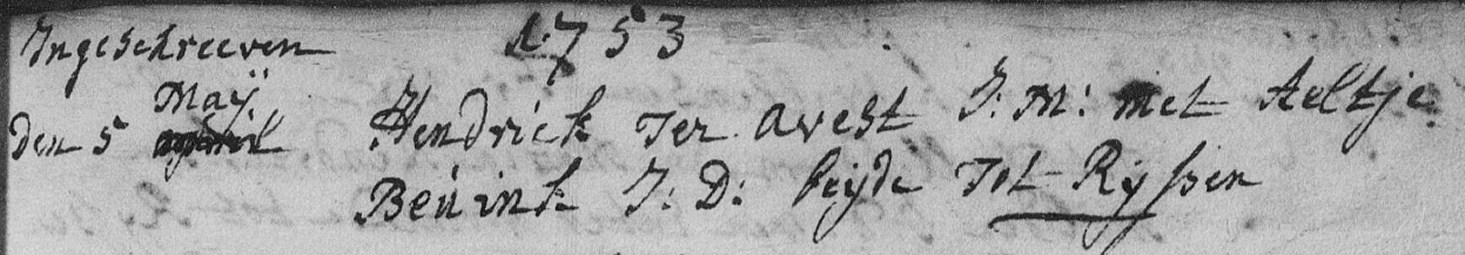 Ingeschreeven 1753
Den 5 Maÿ Hendrick Ter avest J: M: met Aeltje
Beuink J: D: beÿde Tot Rÿssen